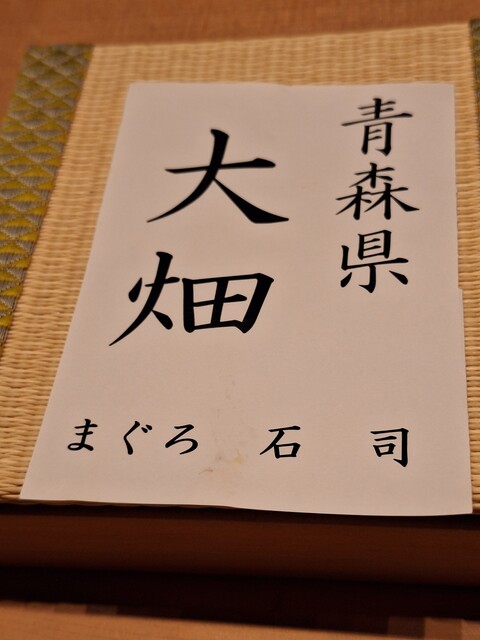 青森県
大畑
まぐろ 石司